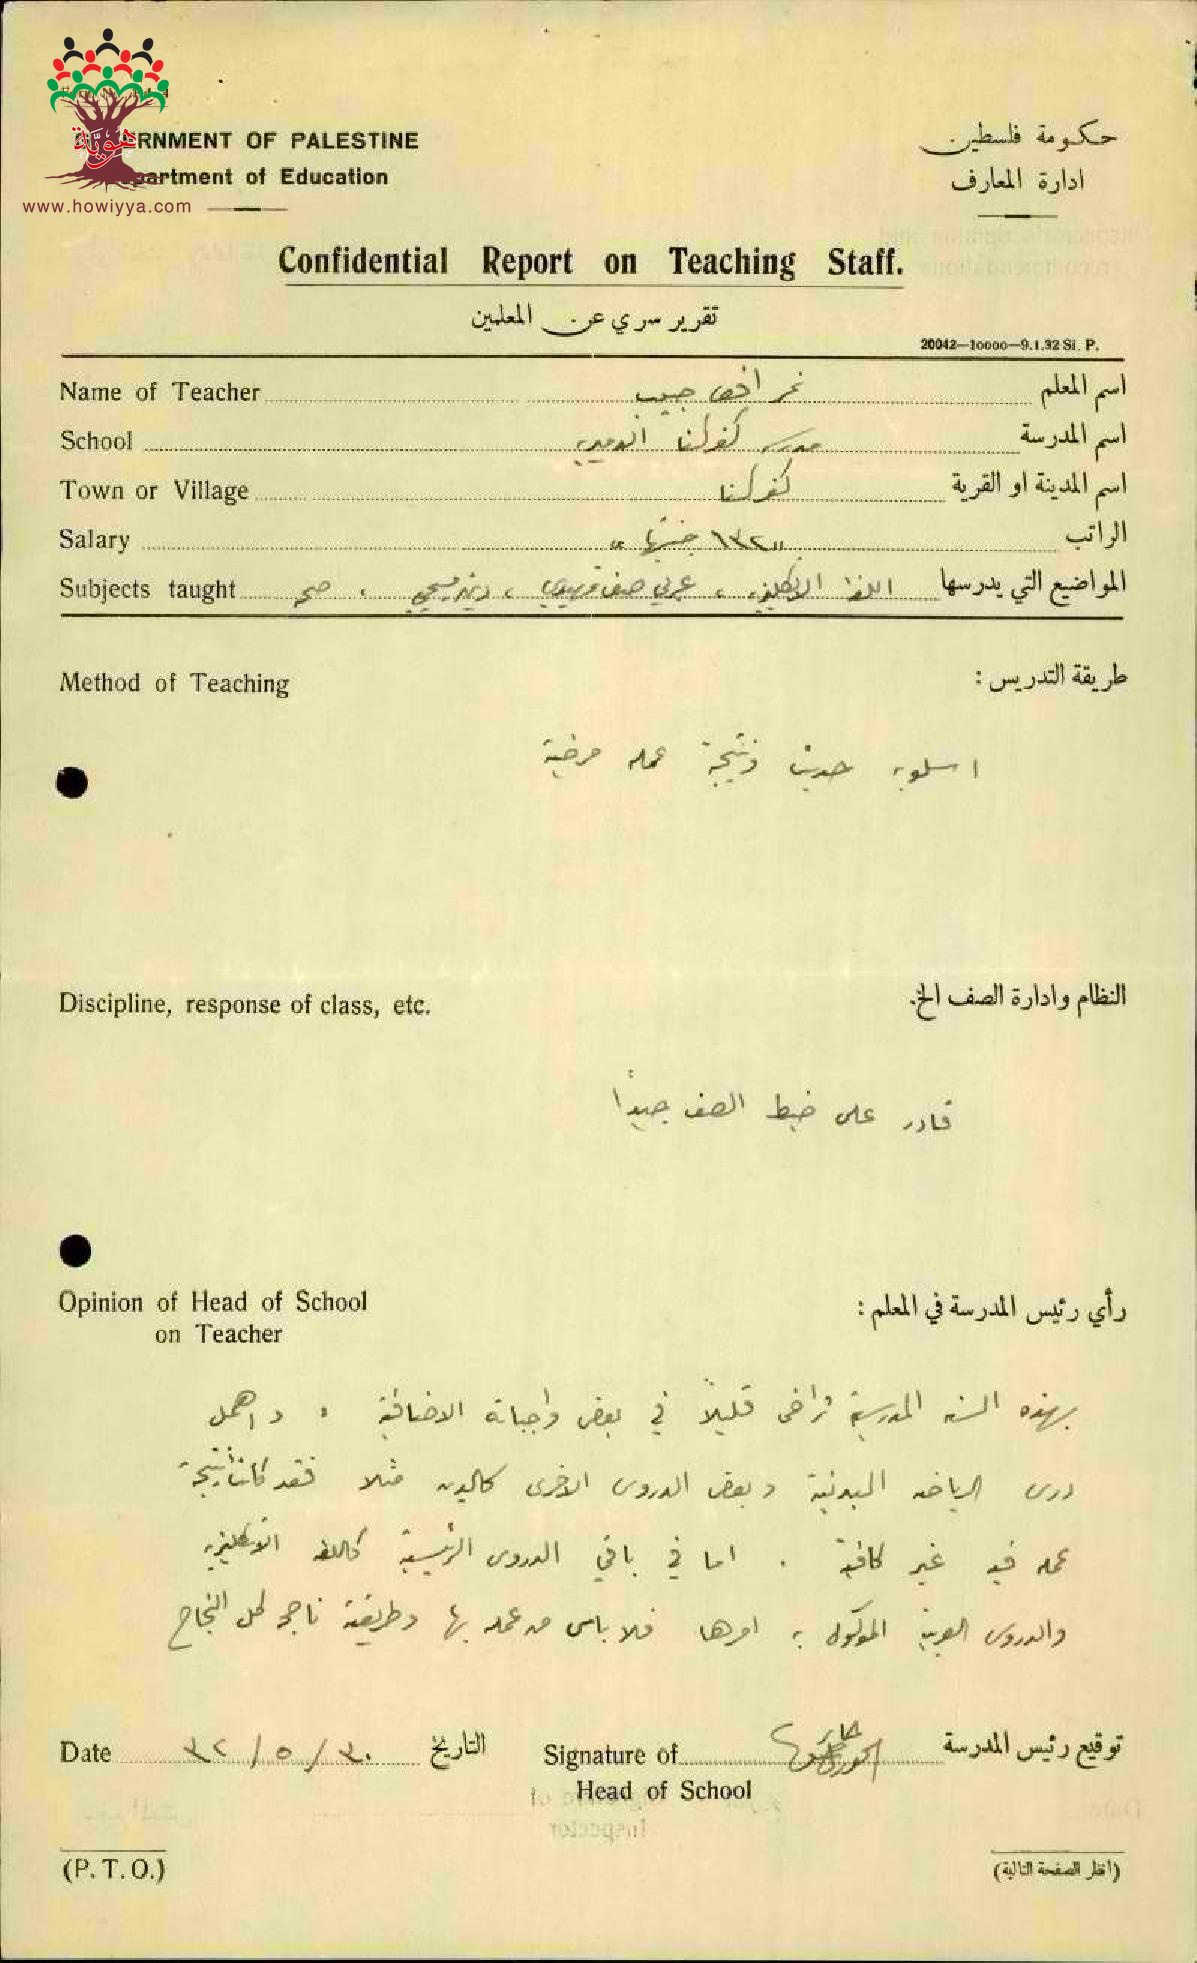 GOVERNMENT OF PALESTINE
Department of Education
هوية
www.howiyya.com
حكومة فلسطين
ادارة المعارف
Confidential Report on Teaching Staff.
تقرير سري عن المعلمين
20042—10000—9.1.32 Si. P.
Name of Teacher نمر جبيب اسم المعلم
School مدرسة كفركنا اسم المدرسة
Town or Village كفركنا اسم المدينة او القرية
Salary "١٣٢ جنيها" الراتب
Subjects taught اللغة الانكليزية ، عربي صف ، دين مسيحي ، صحة المواضيع التي يدرسها
Method of Teaching طريقة التدريس :
اسلوبه حديث ونتيجة عمله مرضية
Discipline, response of class, etc. النظام وادارة الصف الخ.
قادر على ضبط الصف جيداً
Opinion of Head of School on Teacher رأي رئيس المدرسة في المعلم :
بهذه السنة المدرسية تراخى قليلاً في بعض واجباته الاضافية . واهمل
درس الرياضة البدنية وبعض الدروس الاخرى كالدين مثلا فقد كانت نتيجة
عمله فيه غير كافية . اما في باقي الدروس الرئيسية كاللغة الانكليزية
والدروس العربية الموكول به امرها فلا باس من عمله بها وطريقته ناجحة كل النجاح
Date ٣٠ / ٥ / ٣٢ التاريخ
Signature of Head of School الخوري توقيع رئيس المدرسة
(P. T. O.)
(انظر الصفحة التالية)